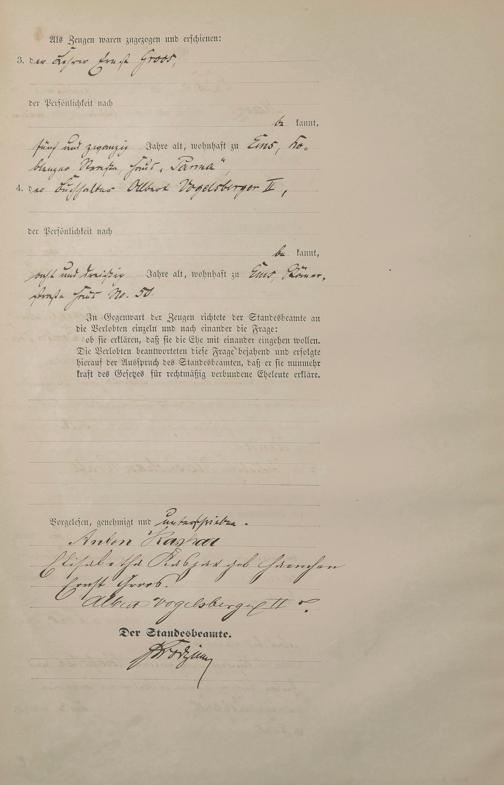 Als Zeugen waren zugezogen und erschienen:
3. der Lehrer Ernst Groos,
der Persönlichkeit nach
be kannt,
fünf und zwanzig Jahre alt, wohnhaft zu Ems, Ko-
blenzer Straße Haus „Parma“,
4. der Buchhalter Albert Vogelsberger II,
der Persönlichkeit nach
be kannt,
und dreißig Jahre alt, wohnhaft zu Ems, Römer-
straße Haus No. 50
In Gegenwart der Zeugen richtete der Standesbeamte an
die Verlobten einzeln und nach einander die Frage:
ob sie erklären, daß sie die Ehe mit einander eingehen wollen.
Die Verlobten beantworteten diese Frage bejahend und erfolgte
hierauf der Ausspruch des Standesbeamten, daß er sie nunmehr
kraft des Gesetzes für rechtmäßig verbundene Eheleute erkläre.
Vorgelesen, genehmigt und unterschrieben.
Anton Kaspar
Elisabetha Kaspar geb
Ernst Groos.
Albert Vogelsberger II
Der Standesbeamte.